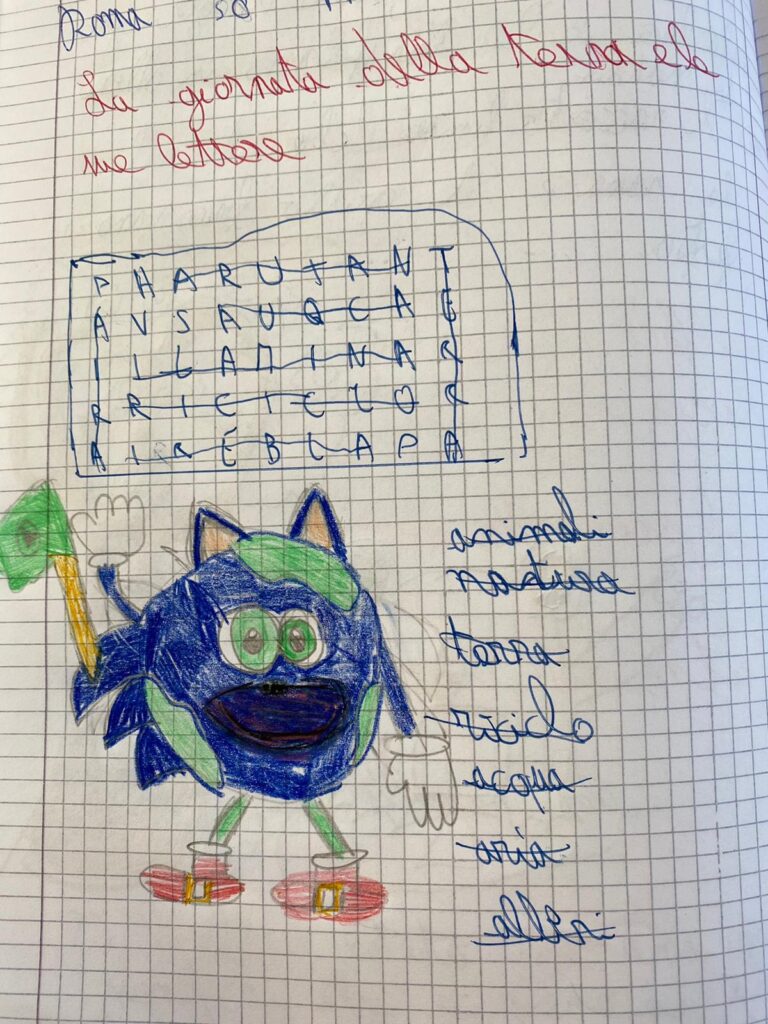 Roma
La giornata della terra e le
me lettere
P H A R U T A N T
A V S A U Q C A E
I I L A M I N A R
R R I C I C L O R
A I R E B L A P A
animali
natura
terra
riciclo
acqua
aria
alberi